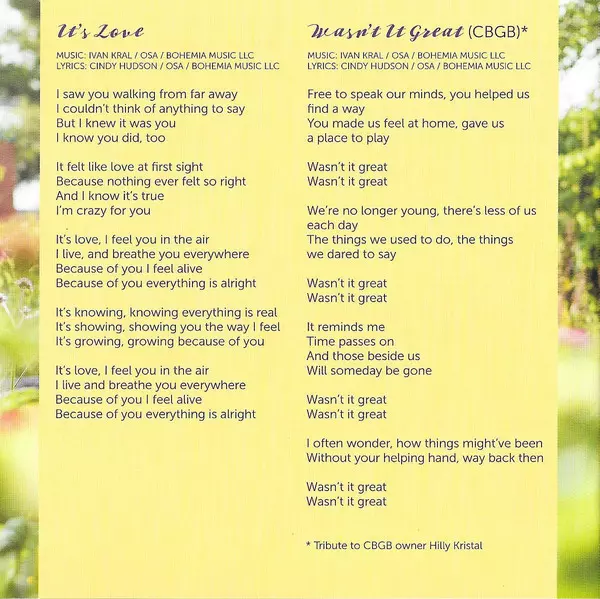 It's Love
MUSIC: IVAN KRAL / OSA / BOHEMIA MUSIC LLC
LYRICS: CINDY HUDSON / OSA / BOHEMIA MUSIC LLC
I saw you walking from far away
I couldn't think of anything to say
But I knew it was you
I know you did, too
It felt like love at first sight
Because nothing ever felt so right
And I know it's true
I'm crazy for you
It's love, I feel you in the air
I live, and breathe you everywhere
Because of you I feel alive
Because of you everything is alright
It's knowing, knowing everything is real
It's showing, showing you the way I feel
It's growing, growing because of you
It's love, I feel you in the air
I live and breathe you everywhere
Because of you I feel alive
Because of you everything is alright
Wasn't It Great (CBGB)*
MUSIC: IVAN KRAL / OSA / BOHEMIA MUSIC LLC
LYRICS: CINDY HUDSON / OSA / BOHEMIA MUSIC LLC
Free to speak our minds, you helped us
find a way
You made us feel at home, gave us
a place to play
Wasn't it great
Wasn't it great
We're no longer young, there's less of us
each day
The things we used to do, the things
we dared to say
Wasn't it great
Wasn't it great
It reminds me
Time passes on
And those beside us
Will someday be gone
Wasn't it great
Wasn't it great
I often wonder, how things might've been
Without your helping hand, way back then
Wasn't it great
Wasn't it great
* Tribute to CBGB owner Hilly Kristal